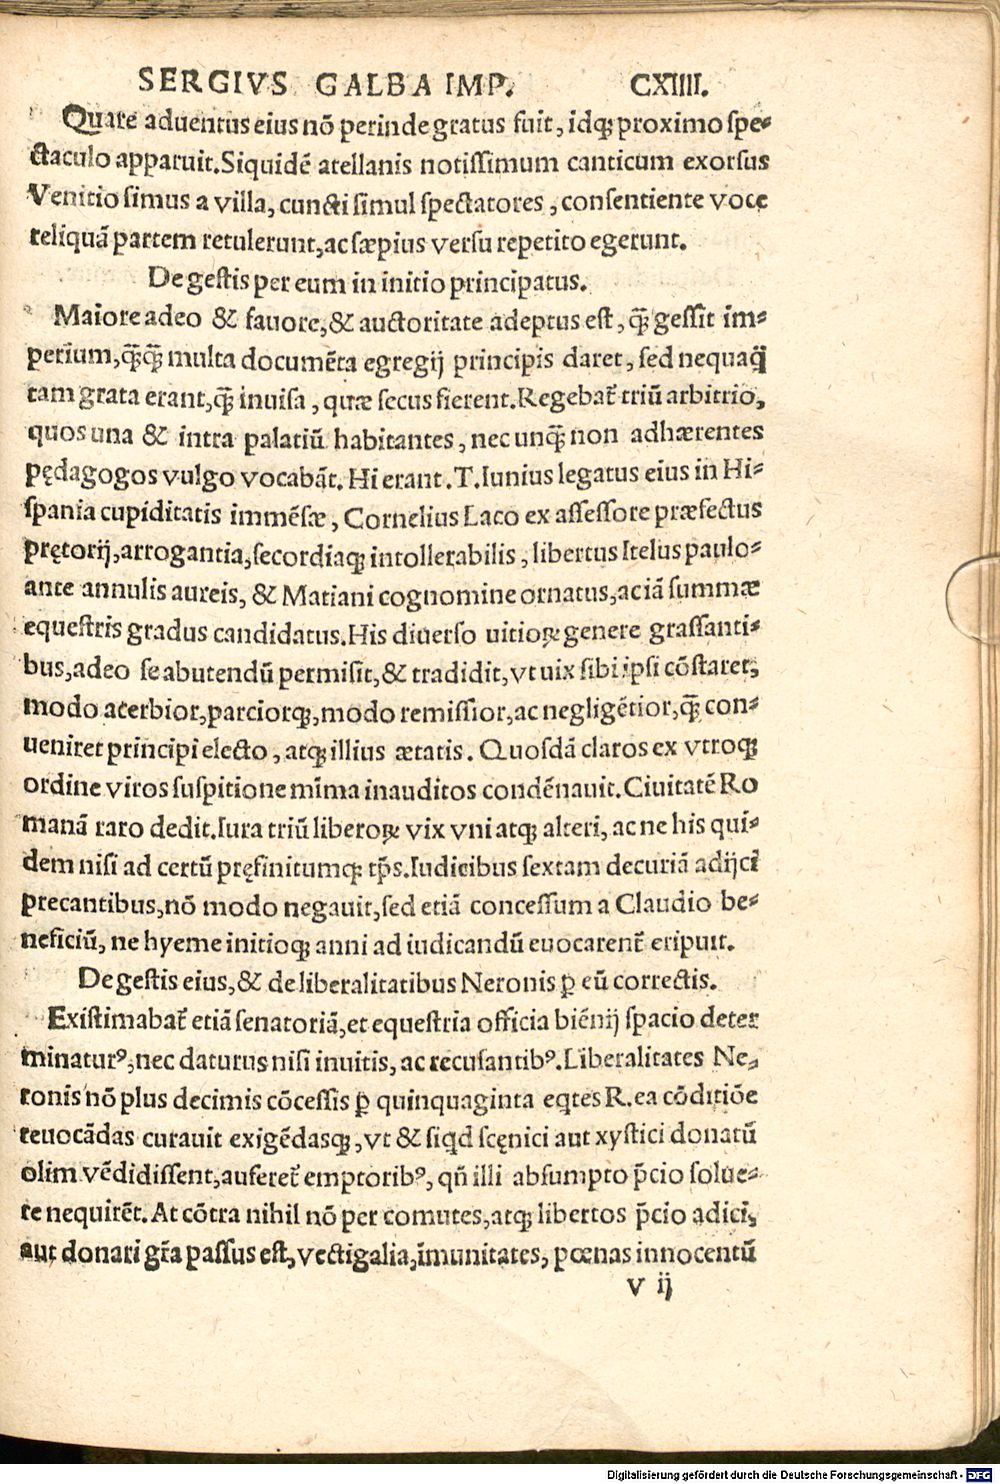 SERGIVS GALBA IMP. CXIIII.
Quare aduentus eius nō perinde gratus fuit, idq; proximo spe-
ctaculo apparuit. Siquidē atellanis notissimum canticum exorsus
Venitio simus a villa, cuncti simul spectatores, consentiente voce
reliquā partem retulerunt, ac sæpius versu repetito egerunt.
De gestis per eum in initio principatus.
Maiore adeo & fauore, & auctoritate adeptus est, q̄ gessit im-
perium, q̄q̄ multa documēta egregij principis daret, sed nequaq̄
tam grata erant, q̄ inuisa, quæ secus fierent. Regebat̄ triū arbitrio,
quos una & intra palatiū habitantes, nec unq̄ non adhærentes
pędagogos vulgo vocabāt. Hi erant. T. Iunius legatus eius in Hi-
spania cupiditatis immēsæ, Cornelius Laco ex assessore præfectus
prętorij, arrogantia, secordiaq; intollerabilis, libertus Itelus paulo-
ante annulis aureis, & Matiani cognomine ornatus, ac iā summæ
equestris gradus candidatus. His diuerso uitioꝝ genere grassanti-
bus, adeo se abutendū permisit, & tradidit, vt uix sibi ipsi cōstaret,
modo acerbior, parciorq;, modo remissior, ac negligētior, q̄ con-
ueniret principi electo, atq; illius ætatis. Quosdā claros ex vtroq;
ordine viros suspitione mīma inauditos condēnauit. Ciuitatē Ro
manā raro dedit. Iura triū liberoꝝ vix vni atq; alteri, ac ne his qui-
dem nisi ad certū pręfinitumq; tp̄s. Iudicibus sextam decuriā adijci
precantibus, nō modo negauit, sed etiā concessum a Claudio be-
neficiū, ne hyeme initioq; anni ad iudicandū euocarent̄ eripuit.
De gestis eius, & de liberalitatibus Neronis ꝑ eū correctis.
Existimabat̄ etiā senatoriā, et equestria officia biēnij spacio deter
minaturꝰ, nec daturus nisi inuitis, ac recusantibꝰ. Liberalitates Ne-
ronis nō plus decimis cōcessis ꝑ quinquaginta eqtes R. ea cōditiōe
reuocādas curauit exigēdasq;, vt & siqd scęnici aut xystici donatū
olim vēdidissent, auferet̄ emptoribꝰ, qn̄ illi absumpto p̄cio solue-
re nequirēt. At cōtra nihil nō per comites, atq; libertos p̄cio adici,
aut donari gr̄a passus est, vectigalia, īmunitates, pœnas innocentū
V ij
Digitalisierung gefördert durch die Deutsche Forschungsgemeinschaft - DFG